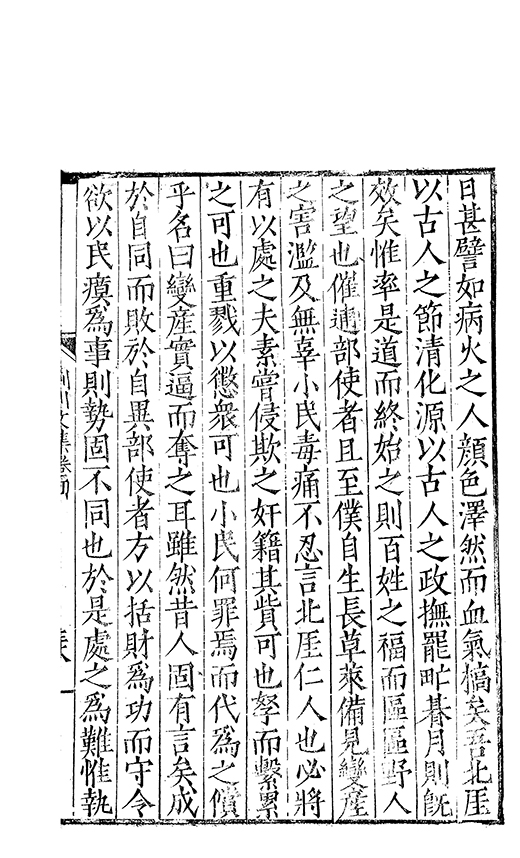 日甚譬如病火之人顔色澤然而血氣槁矣吾北厓
以古人之節清化源以古人之政撫罷甿朞月則旣
效矣惟率是道而終始之則百姓之福而區區野人
之望也催逋部使者且至僕自生長草萊備見變產
之害濫及無辜小民毒痛不忍言北厓仁人也必將
有以處之夫素嘗侵欺之奸籍其貲可也孥而繫累
之可也重戮以懲衆可也小民何罪焉而代爲之償
乎名曰變產實逼而奪之耳雖然昔人固有言矣成
於自同而敗於自異部使者方以括財爲功而守令
欲以民瘼爲事則勢固不同也於是處之爲難惟執
荆川文集卷四